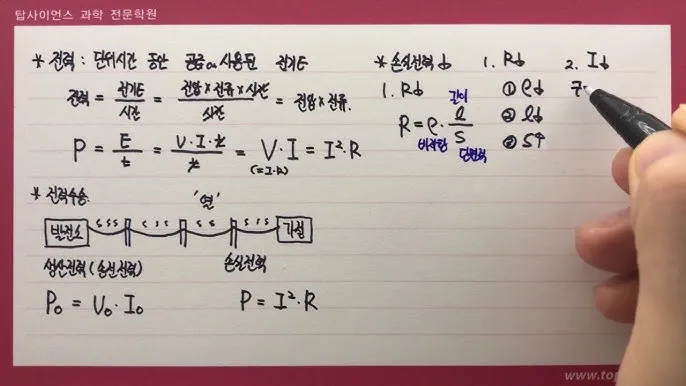 탑사이언스 과학 전문학원
* 전력 : 단위시간 동안 공급 or 사용된 전기E
전력 = 전기E / 시간 = 전압 × 전류 × 시간 / 시간 = 전압 × 전류.
P = E / t = V · I · t / t = V · I = I² · R
(= I · R)
* 전력수송.
'열'
발전소
가정
생산전력 (송전전력)
손실전력
P₀ = V₀ · I₀
P = I² · R
* 손실전력 ↓
1. R↓
2. I↓
1. R↓
길이
R = ρ · l / S
비저항
단면적
① ρ↓
② l↓
③ S↑
www.top